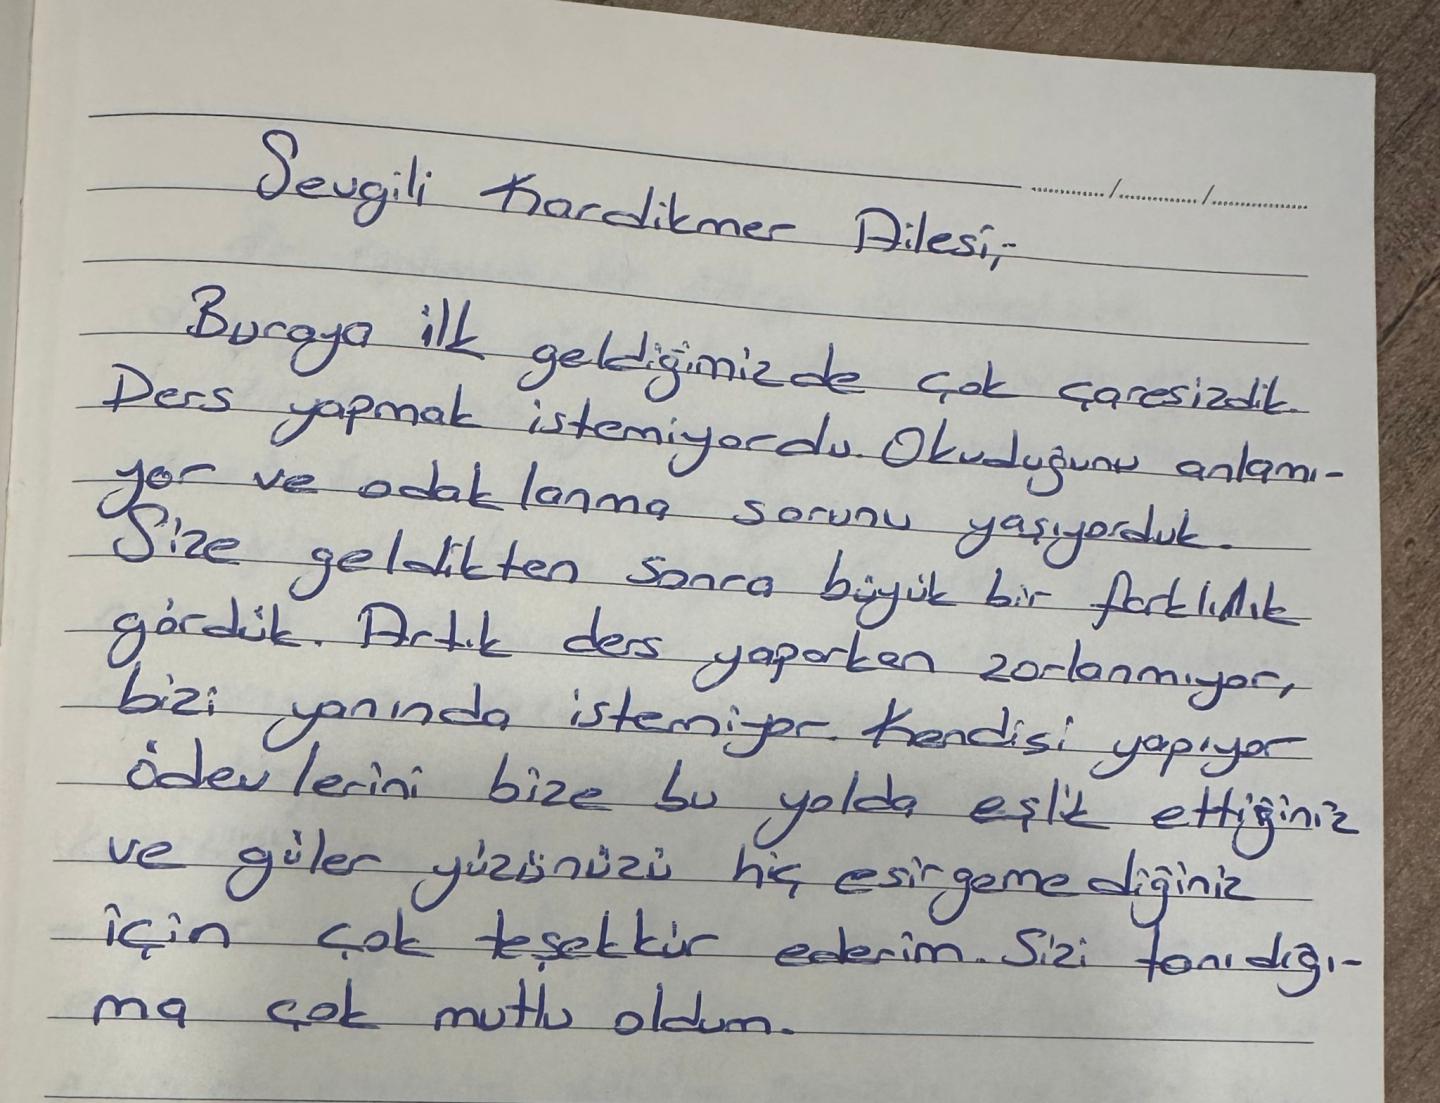 Sevgili Kardikmer Ailesi,
Buraya ilk geldiğimizde çok çaresizdik.
Ders yapmak istemiyordu. Okuduğunu anlamı-
yor ve odaklanma sorunu yaşıyorduk.
Size geldikten sonra büyük bir farklılık
gördük. Artık ders yaparken zorlanmıyor,
bizi yanında istemiyor. Kendisi yapıyor
ödevlerini bize bu yolda eşlik ettiğiniz
ve güler yüzünüzü hiç esirgemediğiniz
için çok teşekkür ederim. Sizi tanıdığı-
ma çok mutlu oldum.